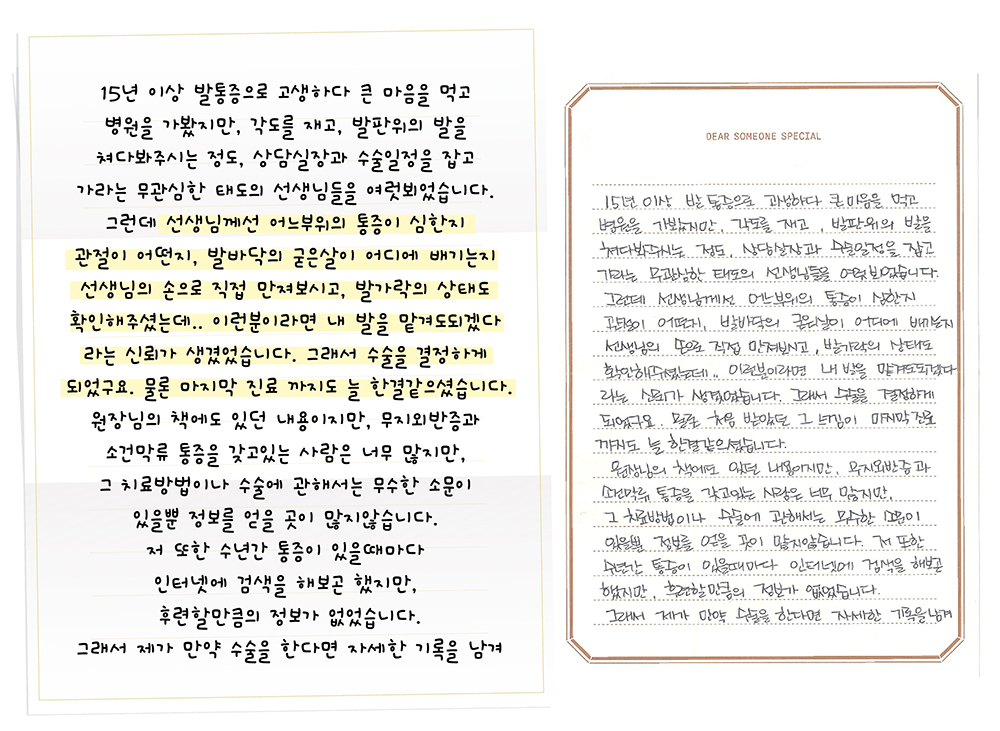 15년 이상 발통증으로 고생하다 큰 마음을 먹고
병원을 가봤지만, 각도를 재고, 발판위의 발을
쳐다봐주시는 정도, 상담실장과 수술일정을 잡고
가라는 무관심한 태도의 선생님들을 여럿뵈었습니다.
그런데 선생님께선 어느부위의 통증이 심한지
관절이 어떤지, 발바닥의 굳은살이 어디에 배기는지
선생님의 손으로 직접 만져보시고, 발가락의 상태도
확인해주셨는데.. 이런분이라면 내 발을 맡겨도되겠다
라는 신뢰가 생겼었습니다. 그래서 수술을 결정하게
되었구요. 물론 마지막 진료 까지도 늘 한결같으셨습니다.
원장님의 책에도 있던 내용이지만, 무지외반증과
소건막류 통증을 갖고있는 사람은 너무 많지만,
그 치료방법이나 수술에 관해서는 무수한 소문이
있을뿐 정보를 얻을 곳이 많지않습니다.
저 또한 수년간 통증이 있을때마다
인터넷에 검색을 해보곤 했지만,
후련할만큼의 정보가 없었습니다.
그래서 제가 만약 수술을 한다면 자세한 기록을 남겨
DEAR SOMEONE SPECIAL
15년 이상 발 통증으로 고생하다 큰 마음을 먹고
병원을 가봤지만, 각도를 재고, 발판위의 발을
쳐다봐주시는 정도, 상담실장과 수술일정을 잡고
가라는 무관심한 태도의 선생님들을 여럿뵈었습니다.
그런데 선생님께선 어느부위의 통증이 심한지
관절이 어떤지, 발바닥의 굳은살이 어디에 배기는지
선생님의 손으로 직접 만져보시고, 발가락의 상태도
확인해주셨는데.. 이런분이라면 내 발을 맡겨도되겠다
라는 신뢰가 생겼었습니다. 그래서 수술을 결정하게
되었구요. 물론 처음 받았던 그 느낌이 마지막 진료
까지도 늘 한결같으셨습니다.
원장님의 책에도 있던 내용이지만, 무지외반증과
소건막류 통증을 갖고있는 사람은 너무 많지만,
그 치료방법이나 수술에 관해서는 무수한 소문이
있을뿐 정보를 얻을 곳이 많지않습니다. 저 또한
수년간 통증이 있을때마다 인터넷에 검색을 해보곤
했지만, 후련할만큼의 정보가 없었습니다.
그래서 제가 만약 수술을 한다면 자세한 기록을 남겨